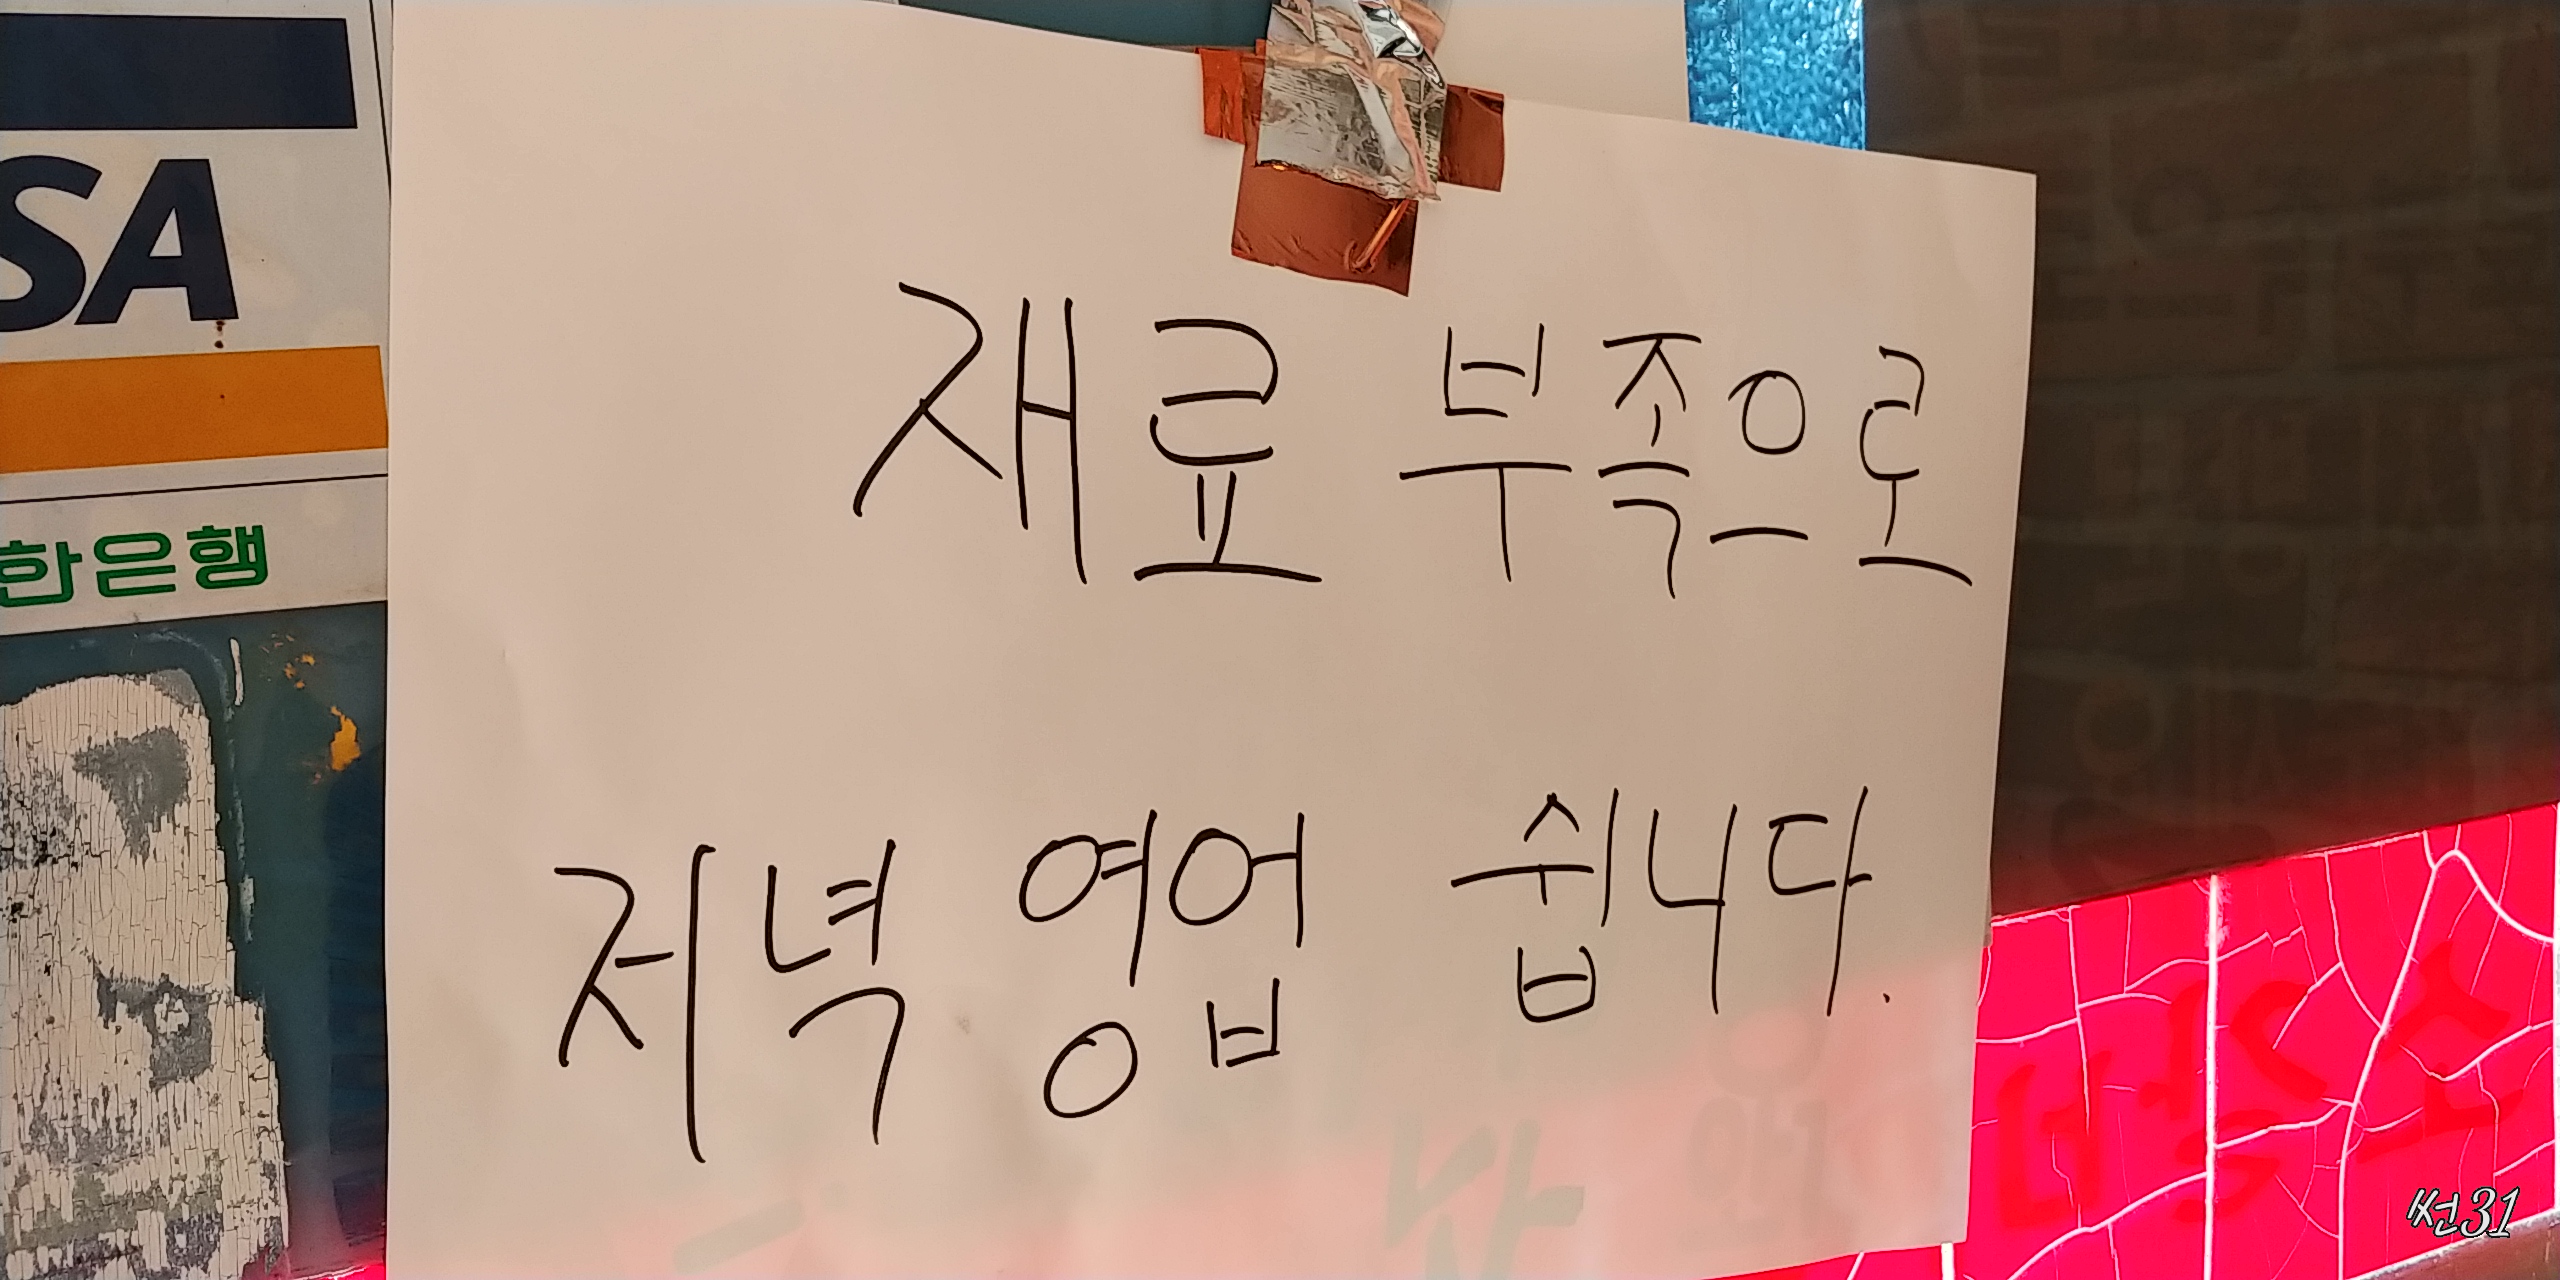 SA
한은행
재료 부족으로
저녁 영업 쉽니다.
썬31